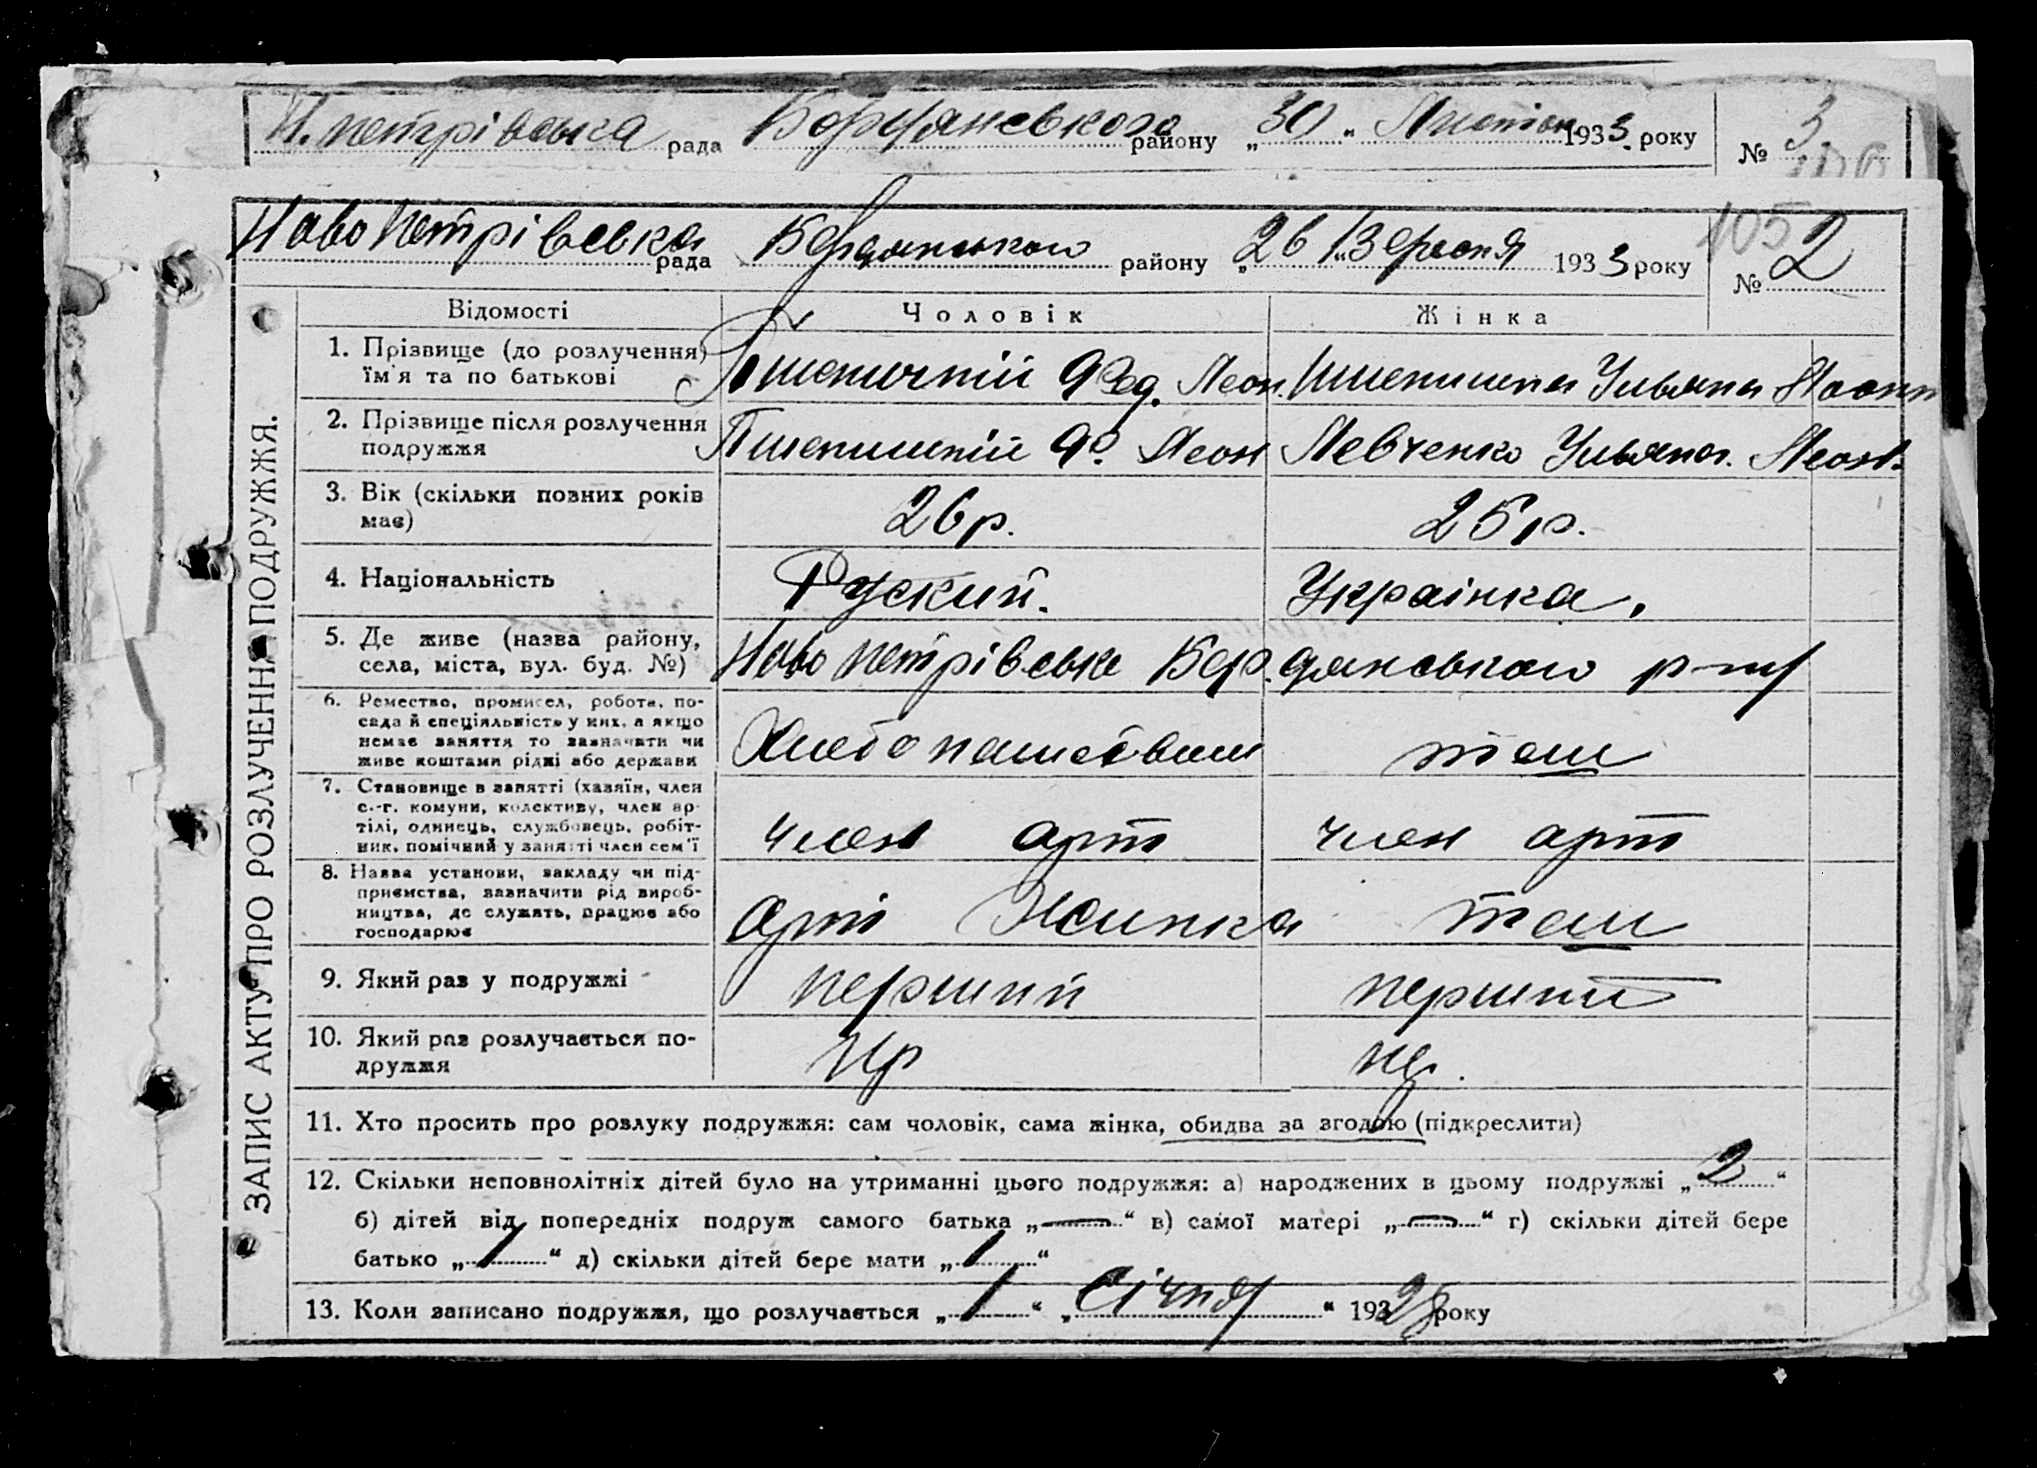 Н. петрівська рада Бердянського району „30" Листоп 1933 року № 3
106
Ново Петрівська рада Бердянського району „26" Вересня 1933 року № 2
105
ЗАПИС АКТУ ПРО РОЗЛУЧЕННЯ ПОДРУЖЖЯ.
Відомості Чоловік Жінка
1. Прізвище (до розлучення) Пшеничній Фед. Леон. Пшенишна Ульяна
їм'я та по батькові
2. Прізвище після розлучення Пшенишній Ф. Леон Левченко Ульяна. Леонт.
подружжя
3. Вік (скільки повних років 26 р. 25 р.
має)
4. Національність Руский. Украінка.
5. Де живе (назва району, Ново петрівське Бердянського р-ну
села, міста, вул. буд. №)
6. Ремество, промисел, робота, по-
сада й спеціяльність у них, а якщо
немає заняття то зазначити чи Хлебопашество теш
живе коштами рідні або держави
7. Становище в занятті (хазяїн, член
с.-г. комуни, колективу, член ар-
тілі, одинець, службовець, робіт- член арт член арт
ник, помічний у занятті член сем'ї
8. Назва установи, закладу чи під-
приємства, зазначити рід вироб-
ництва, де служить, працює або Арт теш
господарює
9. Який раз у подружжі перший перший
10. Який раз розлучається по- пер пер.
дружжя
11. Хто просить про розлуку подружжя: сам чоловік, сама жінка, обидва за згодою (підкреслити)
12. Скільки неповнолітніх дітей було на утриманні цього подружжя: а) народжених в цьому подружжі „2"
б) дітей від попередніх подруж самого батька „—" в) самої матері „—" г) скільки дітей бере
батько „1" д) скільки дітей бере мати „1"
13. Коли записано подружжя, що розлучається „1" „Січня" 1928 року